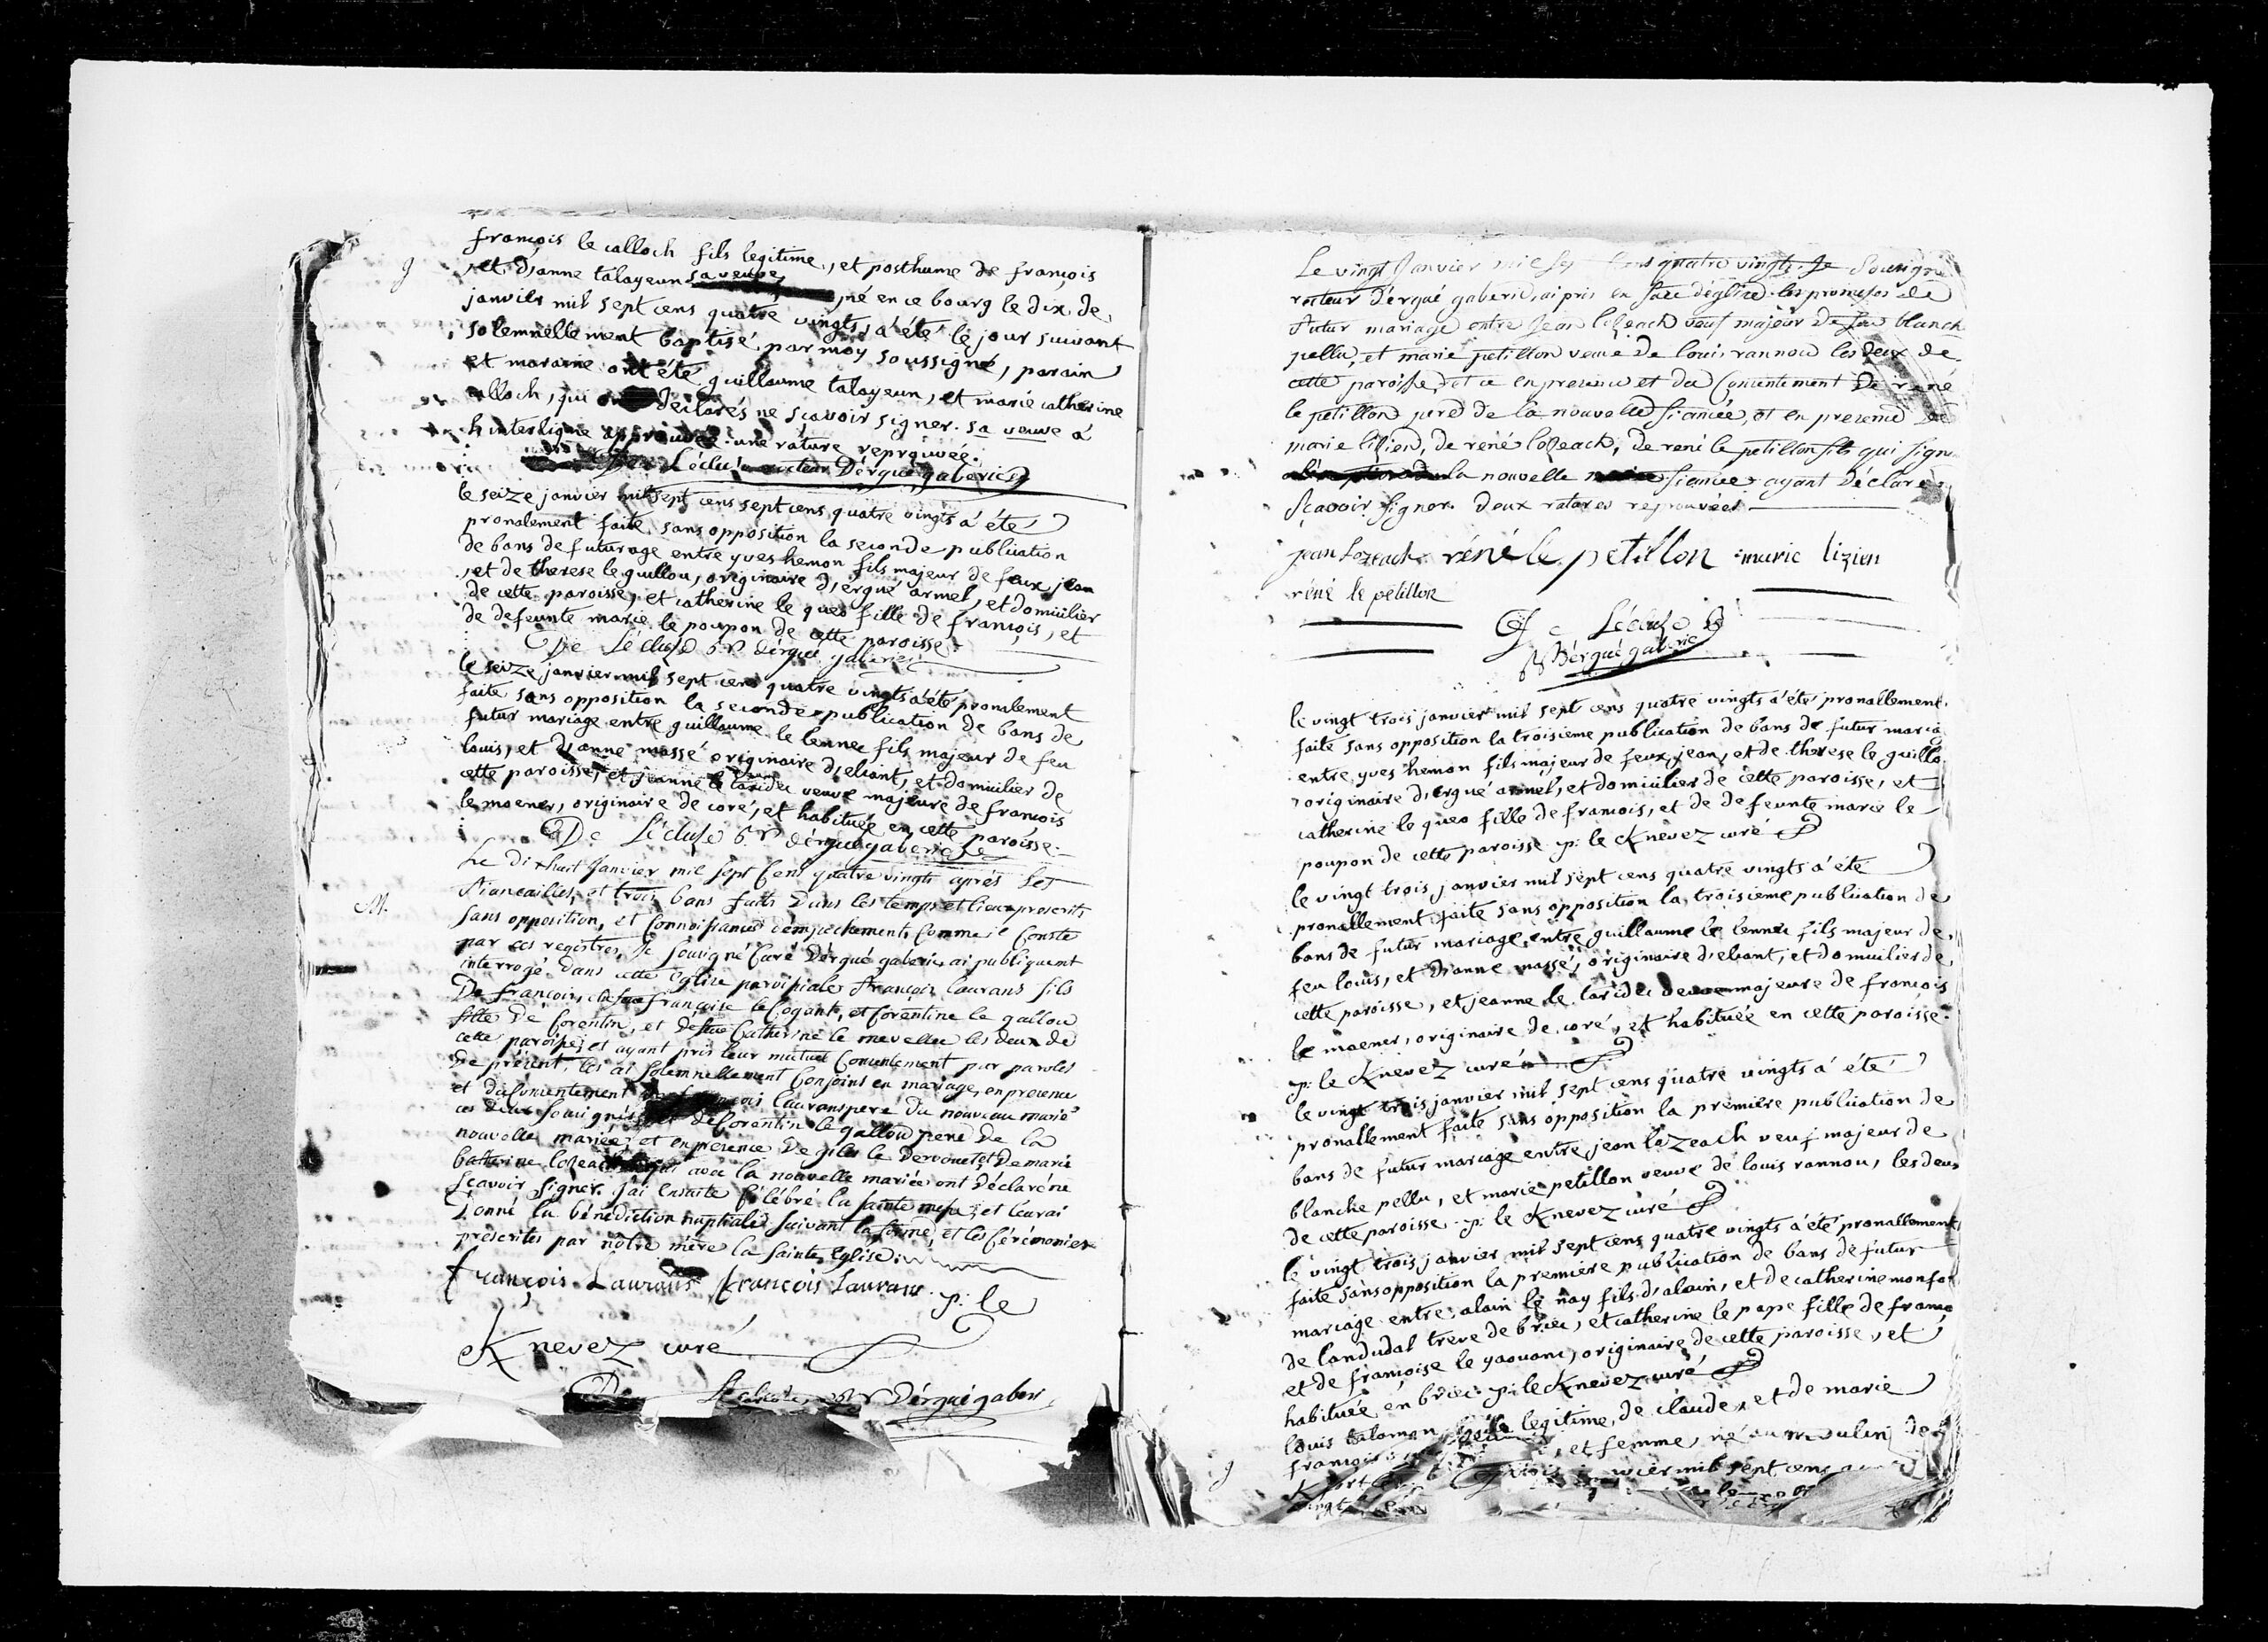 françois le calloch fils legitime, et posthume de françois
, et d'anne talayeun sa veuve, né en ce bourg le dix de
janvier mil sept cens quatre vingts, a été le jour suivant
solemnellement baptisé par moy soussigné, parain
et maraine ont été guillaume talayeun, et marie catherine
calloch, qui ont declarés ne sçavoir signer. sa veuve à
l'interligne approuvée. une rature reprouvée.
De Lécluse recteur D'ergué gaberic
le seize janvier mil sept cens sept cens quatre vingts a été
pronalement faite sans opposition la seconde publication
de bans de futurage entre yves hemon fils majeur de feux jean
, et de therese le guillou, originaire d'ergué armel, et domicilier
de cette paroisse, et catherine le queo fille de françois, et
de defeunte marie le poupon de cette paroisse.
De Lécluse r. d'ergué gaberic
le seize janvier mil sept cens quatre vingts a été pronalement
faite sans opposition la seconde publication de bans de
futur mariage entre guillaume le lennec fils majeur de feu
louis, et d'anne massé originaire d'eliant, et domicilier de
cette paroisse, et jeanne le laridec veuve majeure de françois
le maener, originaire de coré, et habituée en cette paroisse.
De Lécluse r. d'ergué gaberic
M. Le dixhuit Janvier mil sept Cens quatre vingts après les
fiancailles, et trois bans faits dans les temps et lieux prescrits
sans opposition, et Connoissance d'empechement, Comme il Conste
par ces registres, Je soussigné Curé D'ergué gaberic, ai publiquement
interrogé dans cette Eglise paroissiale François laurans fils
De francois, et françoise le Cogant, et Corentine le gallou
fille De Corentin, et De Catherine le mevellec les deux de
cette paroisse, et ayant pris leur mutuel Consentement par paroles
De présent, les ai solemnellement Conjoins en mariage, en presence
et du Consentement françois laurans pere du nouveau marié
ces deux soussignés, et de Corentin le gallou pere De la
nouvelle mariée, et en presence De giles le Dervouet, et De marie
Catherine lozeach qui avec la nouvelle mariée ont déclaré ne
sçavoir signer. J'ai ensuite Célébré la sainte messe, et leur ai
Donné la bénédiction nuptiale suivant la forme, et les Cérémonies
prescrites par nôtre mère la sainte Eglise.
François Laurans françois Laurans p: le
Knevez curé
De Lécluse r D'ergué gaberic
Le vingt Janvier mil sept Cens quatre vingts. Je soussigné
recteur d'ergué gaberic, ai pris en face d'église les promesses de
futur mariage entre Jean lozeach veuf majeur de blanch
pellu, et marie petillon veuve De louis rannou les deux de
cette paroisse, et ce en presence et du Consentement De rené
le petillon pere de la nouvelle fiancée, et en presence de
marie lizien, de rené lozeach, de rené le petillon fils qui signe
la nouvelle fiancée ayant déclaré
sçavoir signer. Deux ratures reprouvées.
jean Lozeach réné le petillon marie lizien
réné le petillon
De Lécluse
D'ergué gaberic
le vingt trois janvier mil sept cens quatre vingts a été pronallement
faite sans opposition la troisieme publication de bans de futur maria
entre yves hemon fils majeur de feux jean, et de therese le guillo
originaire d'ergué armel, et domicilier de cette paroisse, et
catherine le queo fille de francois, et de defeunte marie le
poupon de cette paroisse. p: le Knevez curé
le vingt trois janvier mil sept cens quatre vingts a été
pronallement faite sans opposition la troisieme publication de
bans de futur mariage entre guillaume le lennec fils majeur de
feu louis, et d'anne massé, originaire d'eliant, et domicilier de
cette paroisse, et jeanne le laridec veuve majeure de francois
le maener, originaire de coré, et habituée en cette paroisse.
p: le Knevez curé
le vingt trois janvier mil sept cens quatre vingts a été
pronallement faite sans opposition la première publication de
bans de futur mariage entre jean lozeach veuf majeur de
blanche pellu, et marie petillon veuve de louis rannou, les deux
de cette paroisse. p: le Knevez curé
le vingt trois janvier mil sept cens quatre vingts a été pronallement
faite sans opposition la première publication de bans de futur
mariage entre alain le nay fils d'alain, et de catherine monfor
de landudal treve de briec, et catherine le pape fille de franço
et de françoise le yaouanc, originaire de cette paroisse, et
habituée en briec. p: le Knevez curé
louis salomon legitime de claude, et de marie
francois , et femme, né au moulin de
janvier mil sept cens
vingt